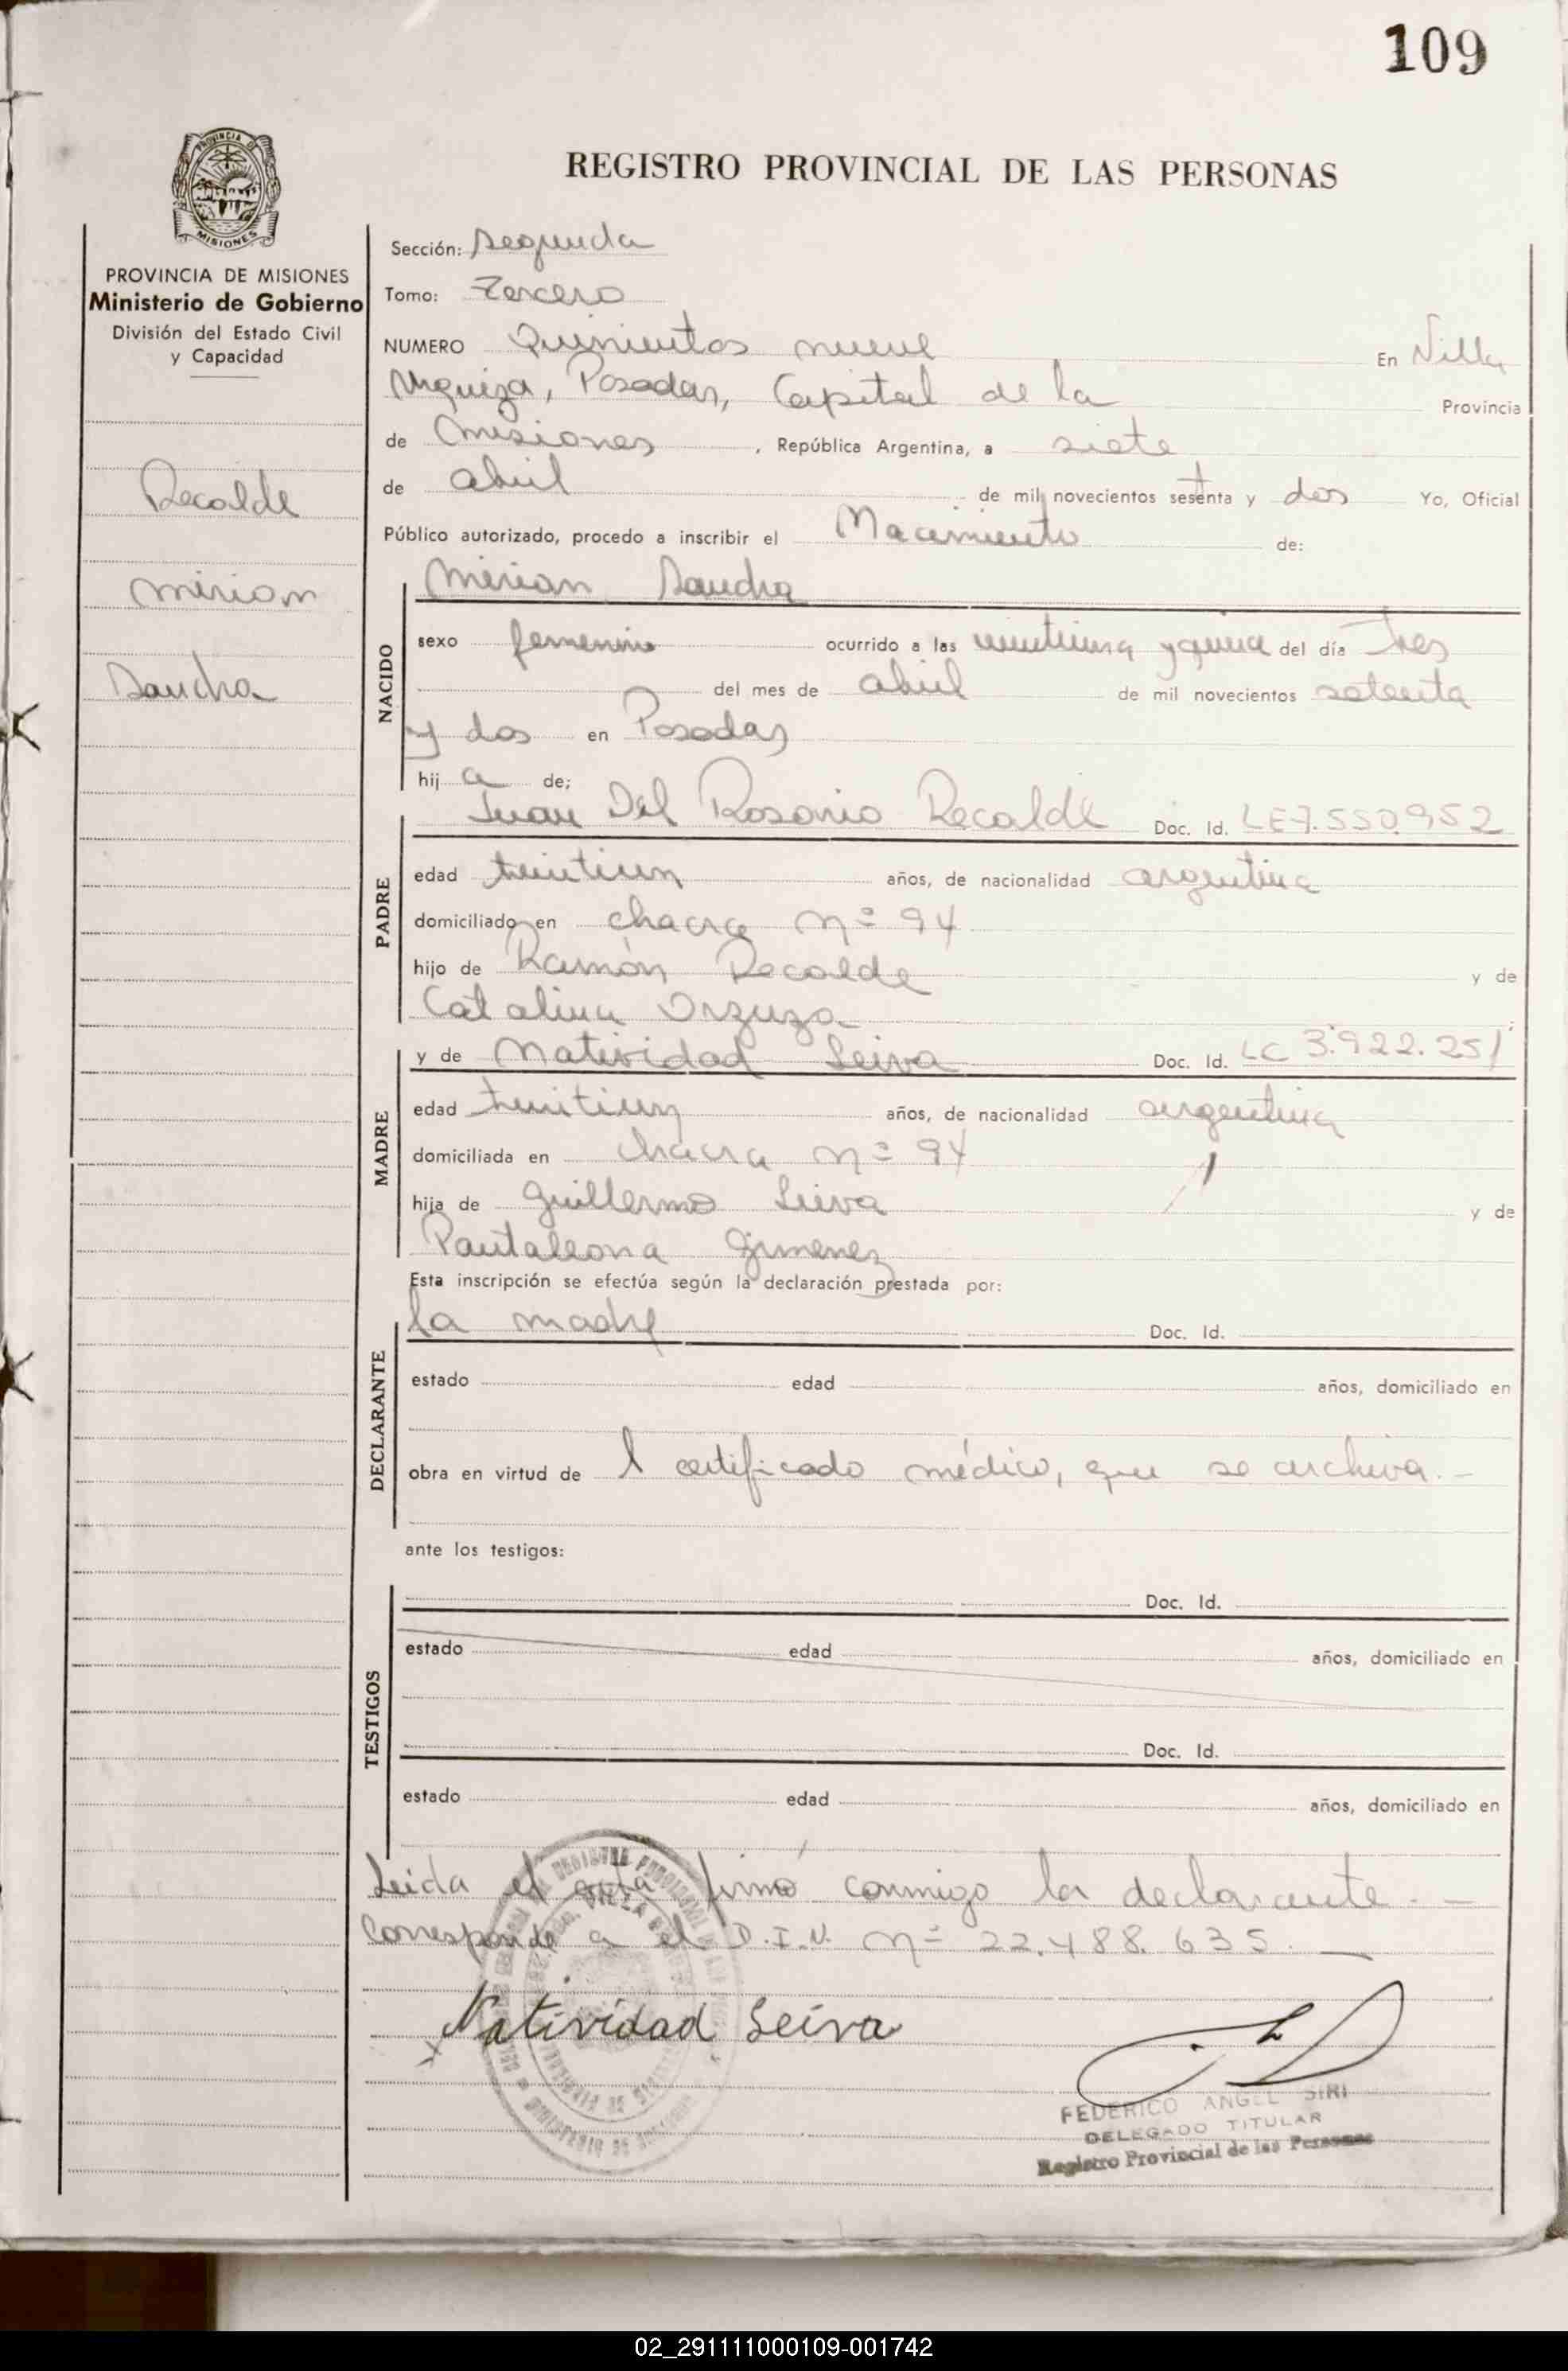 109
PROVINCIA DE
MISIONES
REGISTRO PROVINCIAL DE LAS PERSONAS
PROVINCIA DE MISIONES
Ministerio de Gobierno
División del Estado Civil
y Capacidad
Recalde
Mirian
Sandra
Sección: Segunda
Tomo: Tercero
NUMERO Quinientos nueve En Villa
Urquiza, Posadas, Capital de la Provincia
de Misiones, República Argentina, a siete
de abril de mil novecientos setenta y dos Yo, Oficial
Público autorizado, procedo a inscribir el Nacimiento de:
NACIDO
Mirian Sandra
sexo femenino ocurrido a las del día tres
del mes de abril de mil novecientos setenta
y dos en Posadas
hij a de;
PADRE
Juan Del Rosario Recalde Doc. Id. LE 7.550.952
edad treintiun años, de nacionalidad argentina
domiciliado en chacra nº 94
hijo de Ramón Recalde y de
Catalina Orzuza
MADRE
y de Natividad Leiva Doc. Id. LC 3.922.251
edad treintiun años, de nacionalidad argentina
domiciliada en chacra nº 94
hija de Guillermo Leiva y de
Pantaleona Gimenez
Esta inscripción se efectúa según la declaración prestada por:
DECLARANTE
la madre Doc. Id.
estado edad años, domiciliado en
obra en virtud de l certificado médico, que se archiva.-
ante los testigos:
TESTIGOS
Doc. Id.
estado edad años, domiciliado en
Doc. Id.
estado edad años, domiciliado en
Leida el acta firmó conmigo la declarante. -
Corresponde a el D.I.N. nº 22.488.635. -
Natividad Leiva
FEDERICO ANGEL SIRI
DELEGADO TITULAR
Registro Provincial de las Personas
02_291111000109-001742